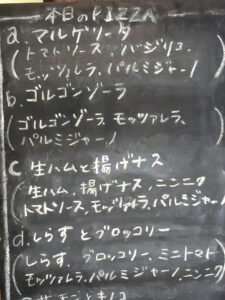 本日のPIZZA
a. マルゲリータ
(トマトソース、バジリコ、
モッツァレラ、パルミジャーノ)
b. ゴルゴンゾーラ
(ゴルゴンゾーラ、モッツァレラ、
パルミジャーノ)
c. 生ハムと揚げナス
(生ハム、揚げナス、ニンニク
トマトソース、モッツァレラ、パルミジャーノ)
d. しらすとブロッコリー
(しらす、ブロッコリー、ミニトマト
モッツァレラ、パルミジャーノ、ニンニク)